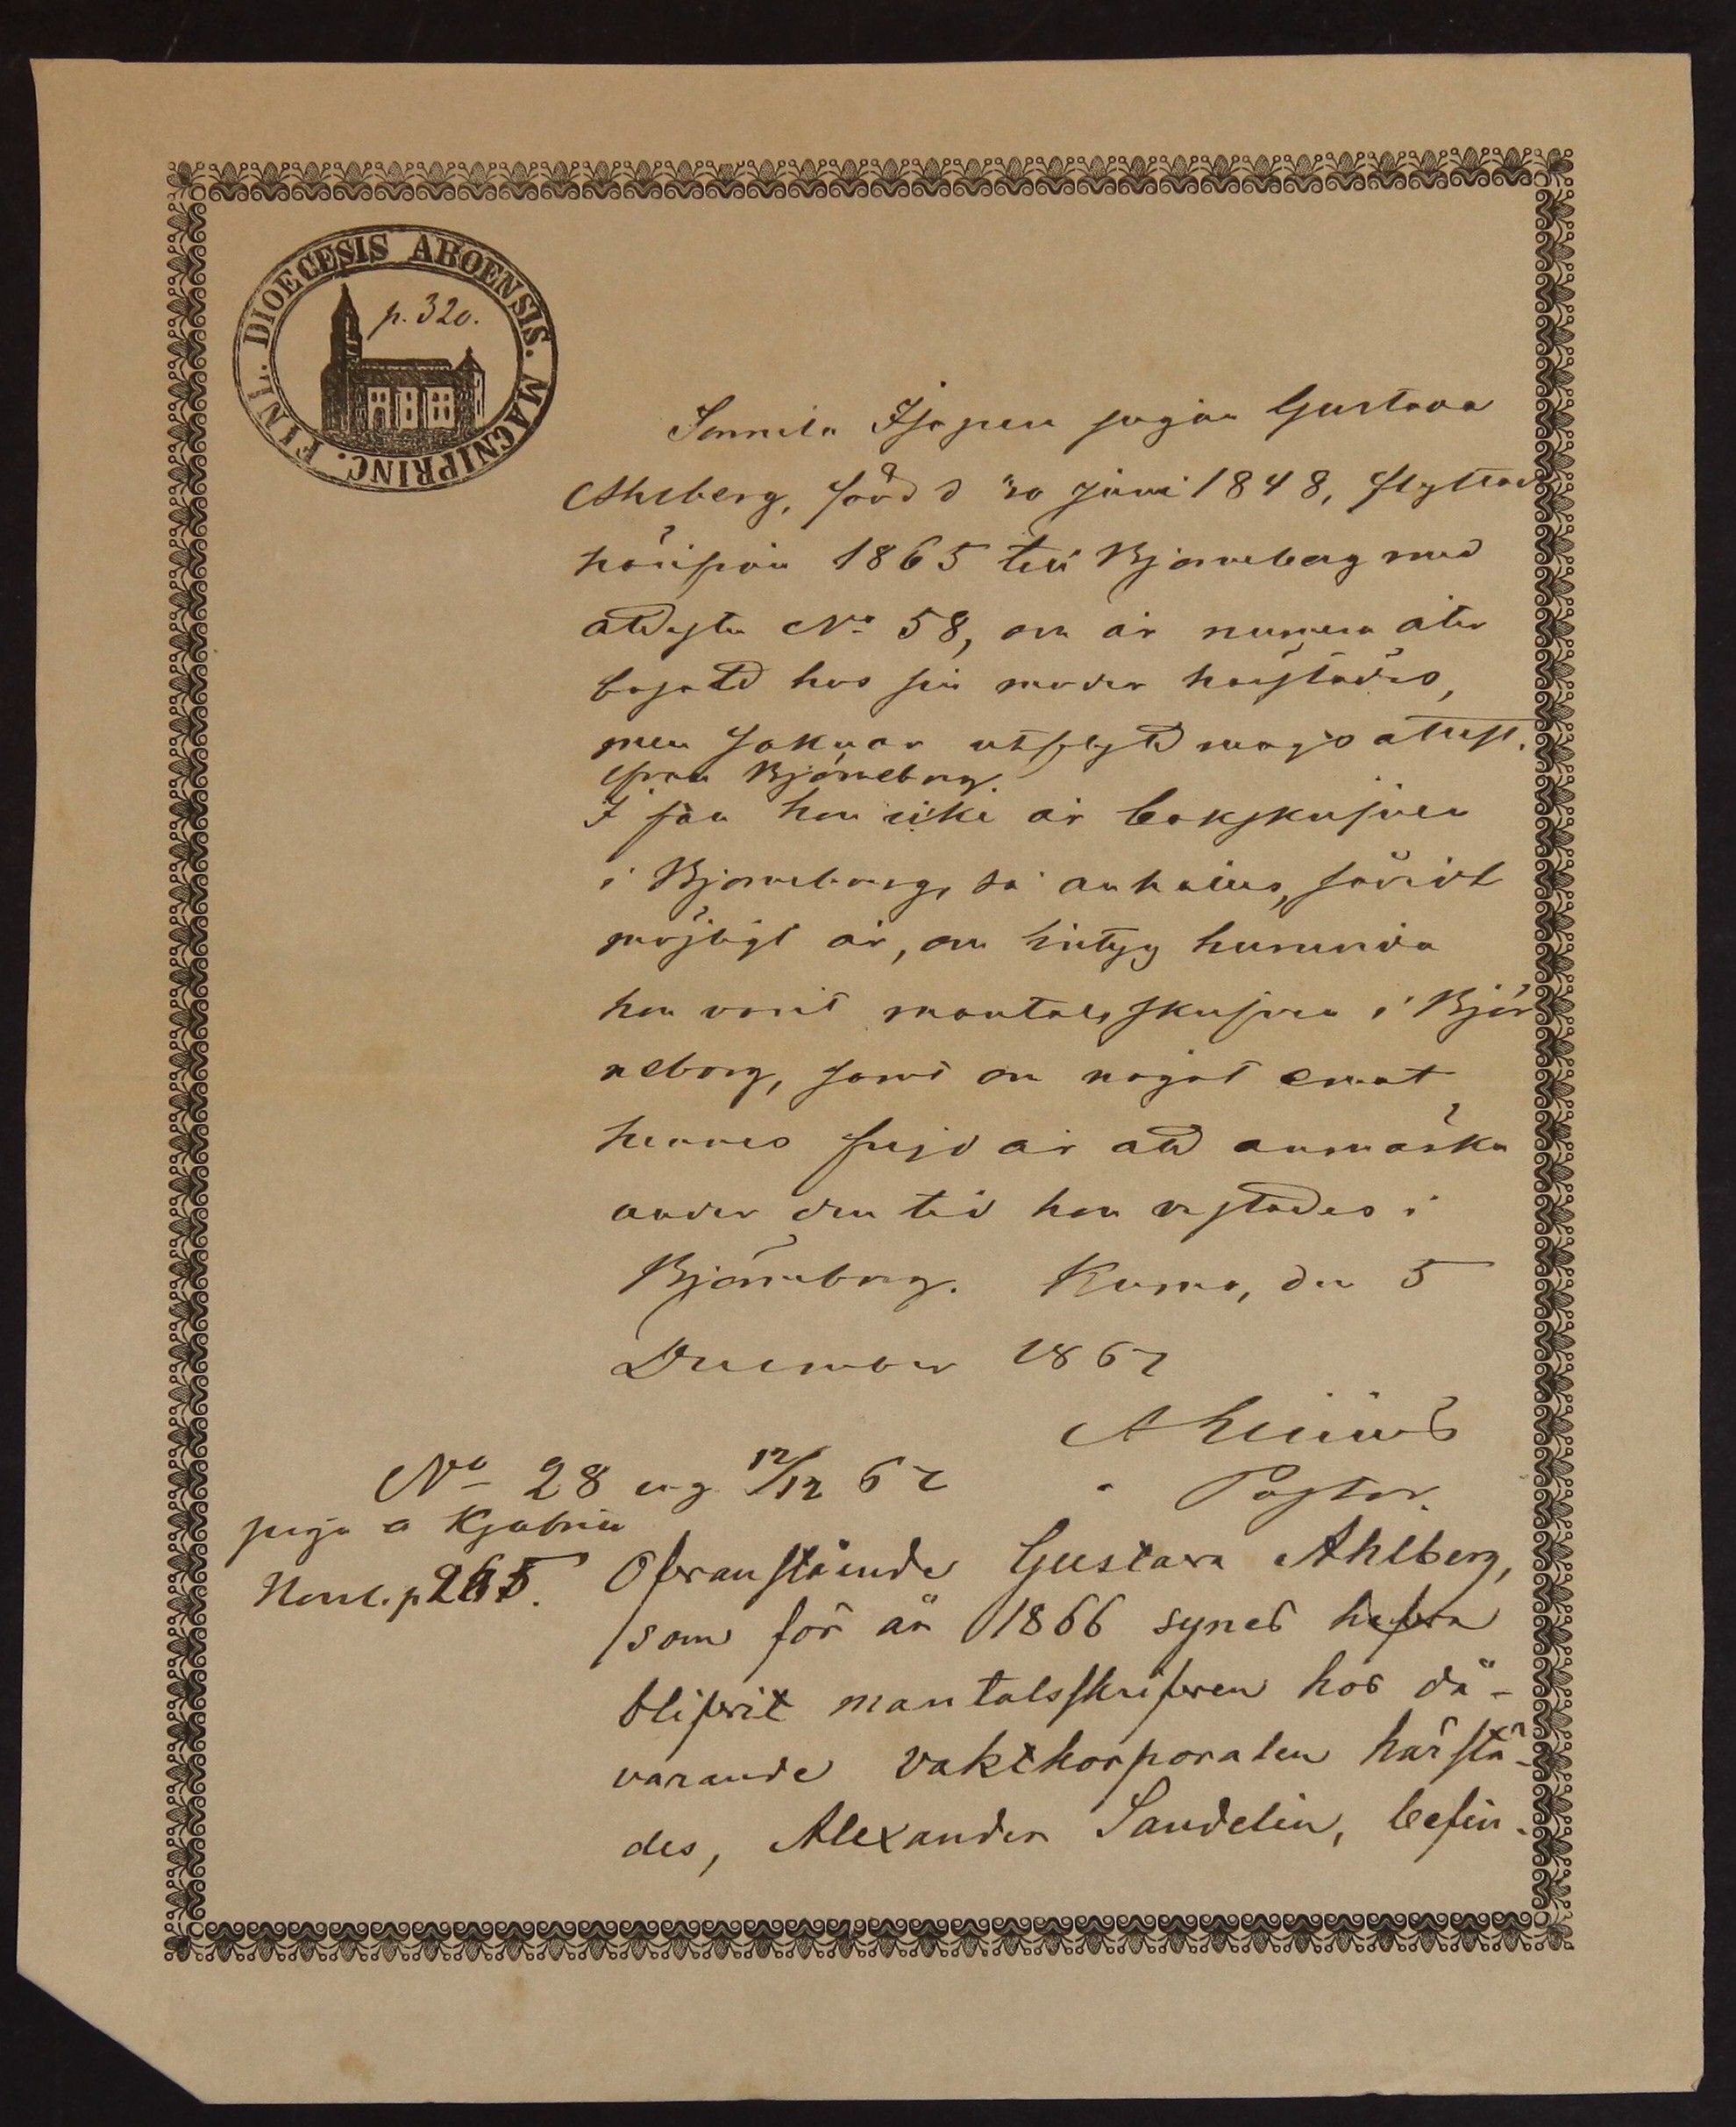 DIOECESIS ABOENSIS. MAGNIPRINC. FINL.
p. 320.
Sonnila Gustava
Ahlberg, född d 30 Juni 1848, flyttade
härifrån 1865 till Björneborg med
attest No 58, om är numera åter
bosatt hos sin moder härstädes,
men saknar utflyttningsattest
från Björneborg.
I fall hon icke är kyrkskrifven
i Björneborg, så anhålles, såvidt
möjligt är, om intyg huruvida
hon varit mantalsskrifven i Björ
neborg, samt om något emot
hennes frejd är att anmärka
under den tid hon vistades i
Björneborg. Kumo, den 5
December 1867
Pastor.
No 28 12/12 67
piga
p 265.
Ofvanstående Gustava Ahlberg,
som för år 1866 synes hafva
blifvit mantalsskrifven hos då-
varande vaktkorporalen härstä-
des, Alexander Sandelin, befin-